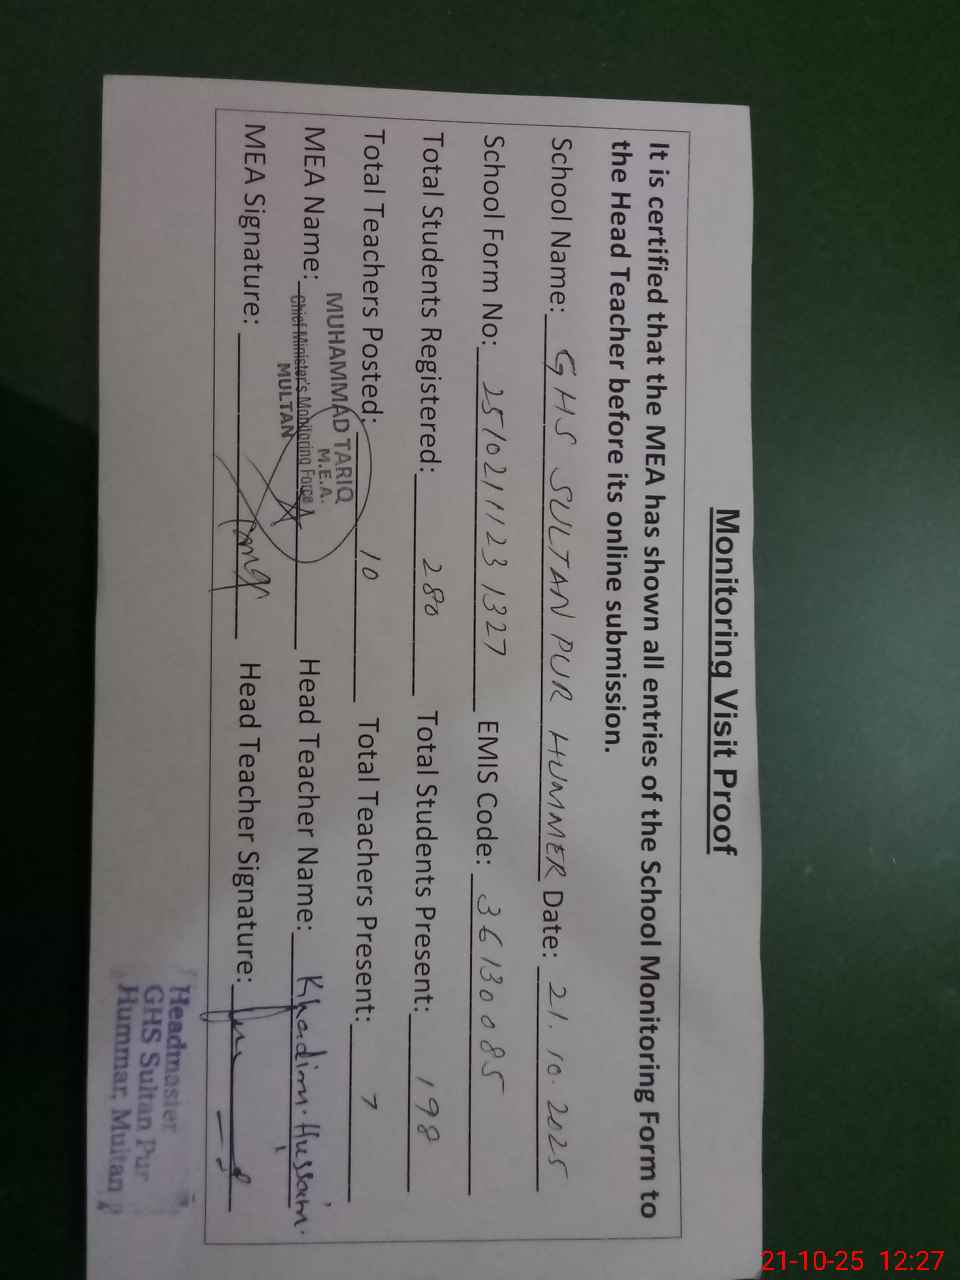 Monitoring Visit Proof
It is certified that the MEA has shown all entries of the School Monitoring Form to
the Head Teacher before its online submission.
School Name: GHS SULTAN PUR HUMMER Date: 21.10.2025
School Form No: 251021123 1327 EMIS Code: 36130085
Total Students Registered: 280 Total Students Present: 198
Total Teachers Posted: 10 Total Teachers Present: 7
MUHAMMAD TARIQ
M.E.A.
MEA Name: Head Teacher Name: Khadim Hussain.
Chief Minister's Monitoring Force
MULTAN
MEA Signature: Head Teacher Signature:
Headmaster
GHS Sultan Pur
Hummar, Multan
21-10-25 12:27